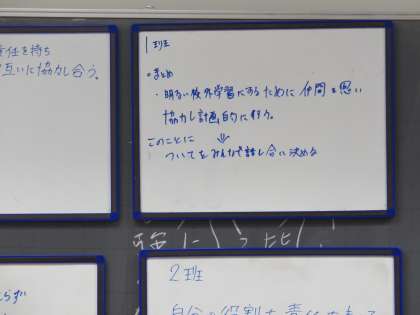 責任を持ち
互いに協力し合う。
1班
◦まとめ
・明るい校外学習にするために仲間を思い
協力し計画的に行う。
このことに ⇓
ついてをみんなで話し合い決める
らず
2班
自分の役割を責任をもって